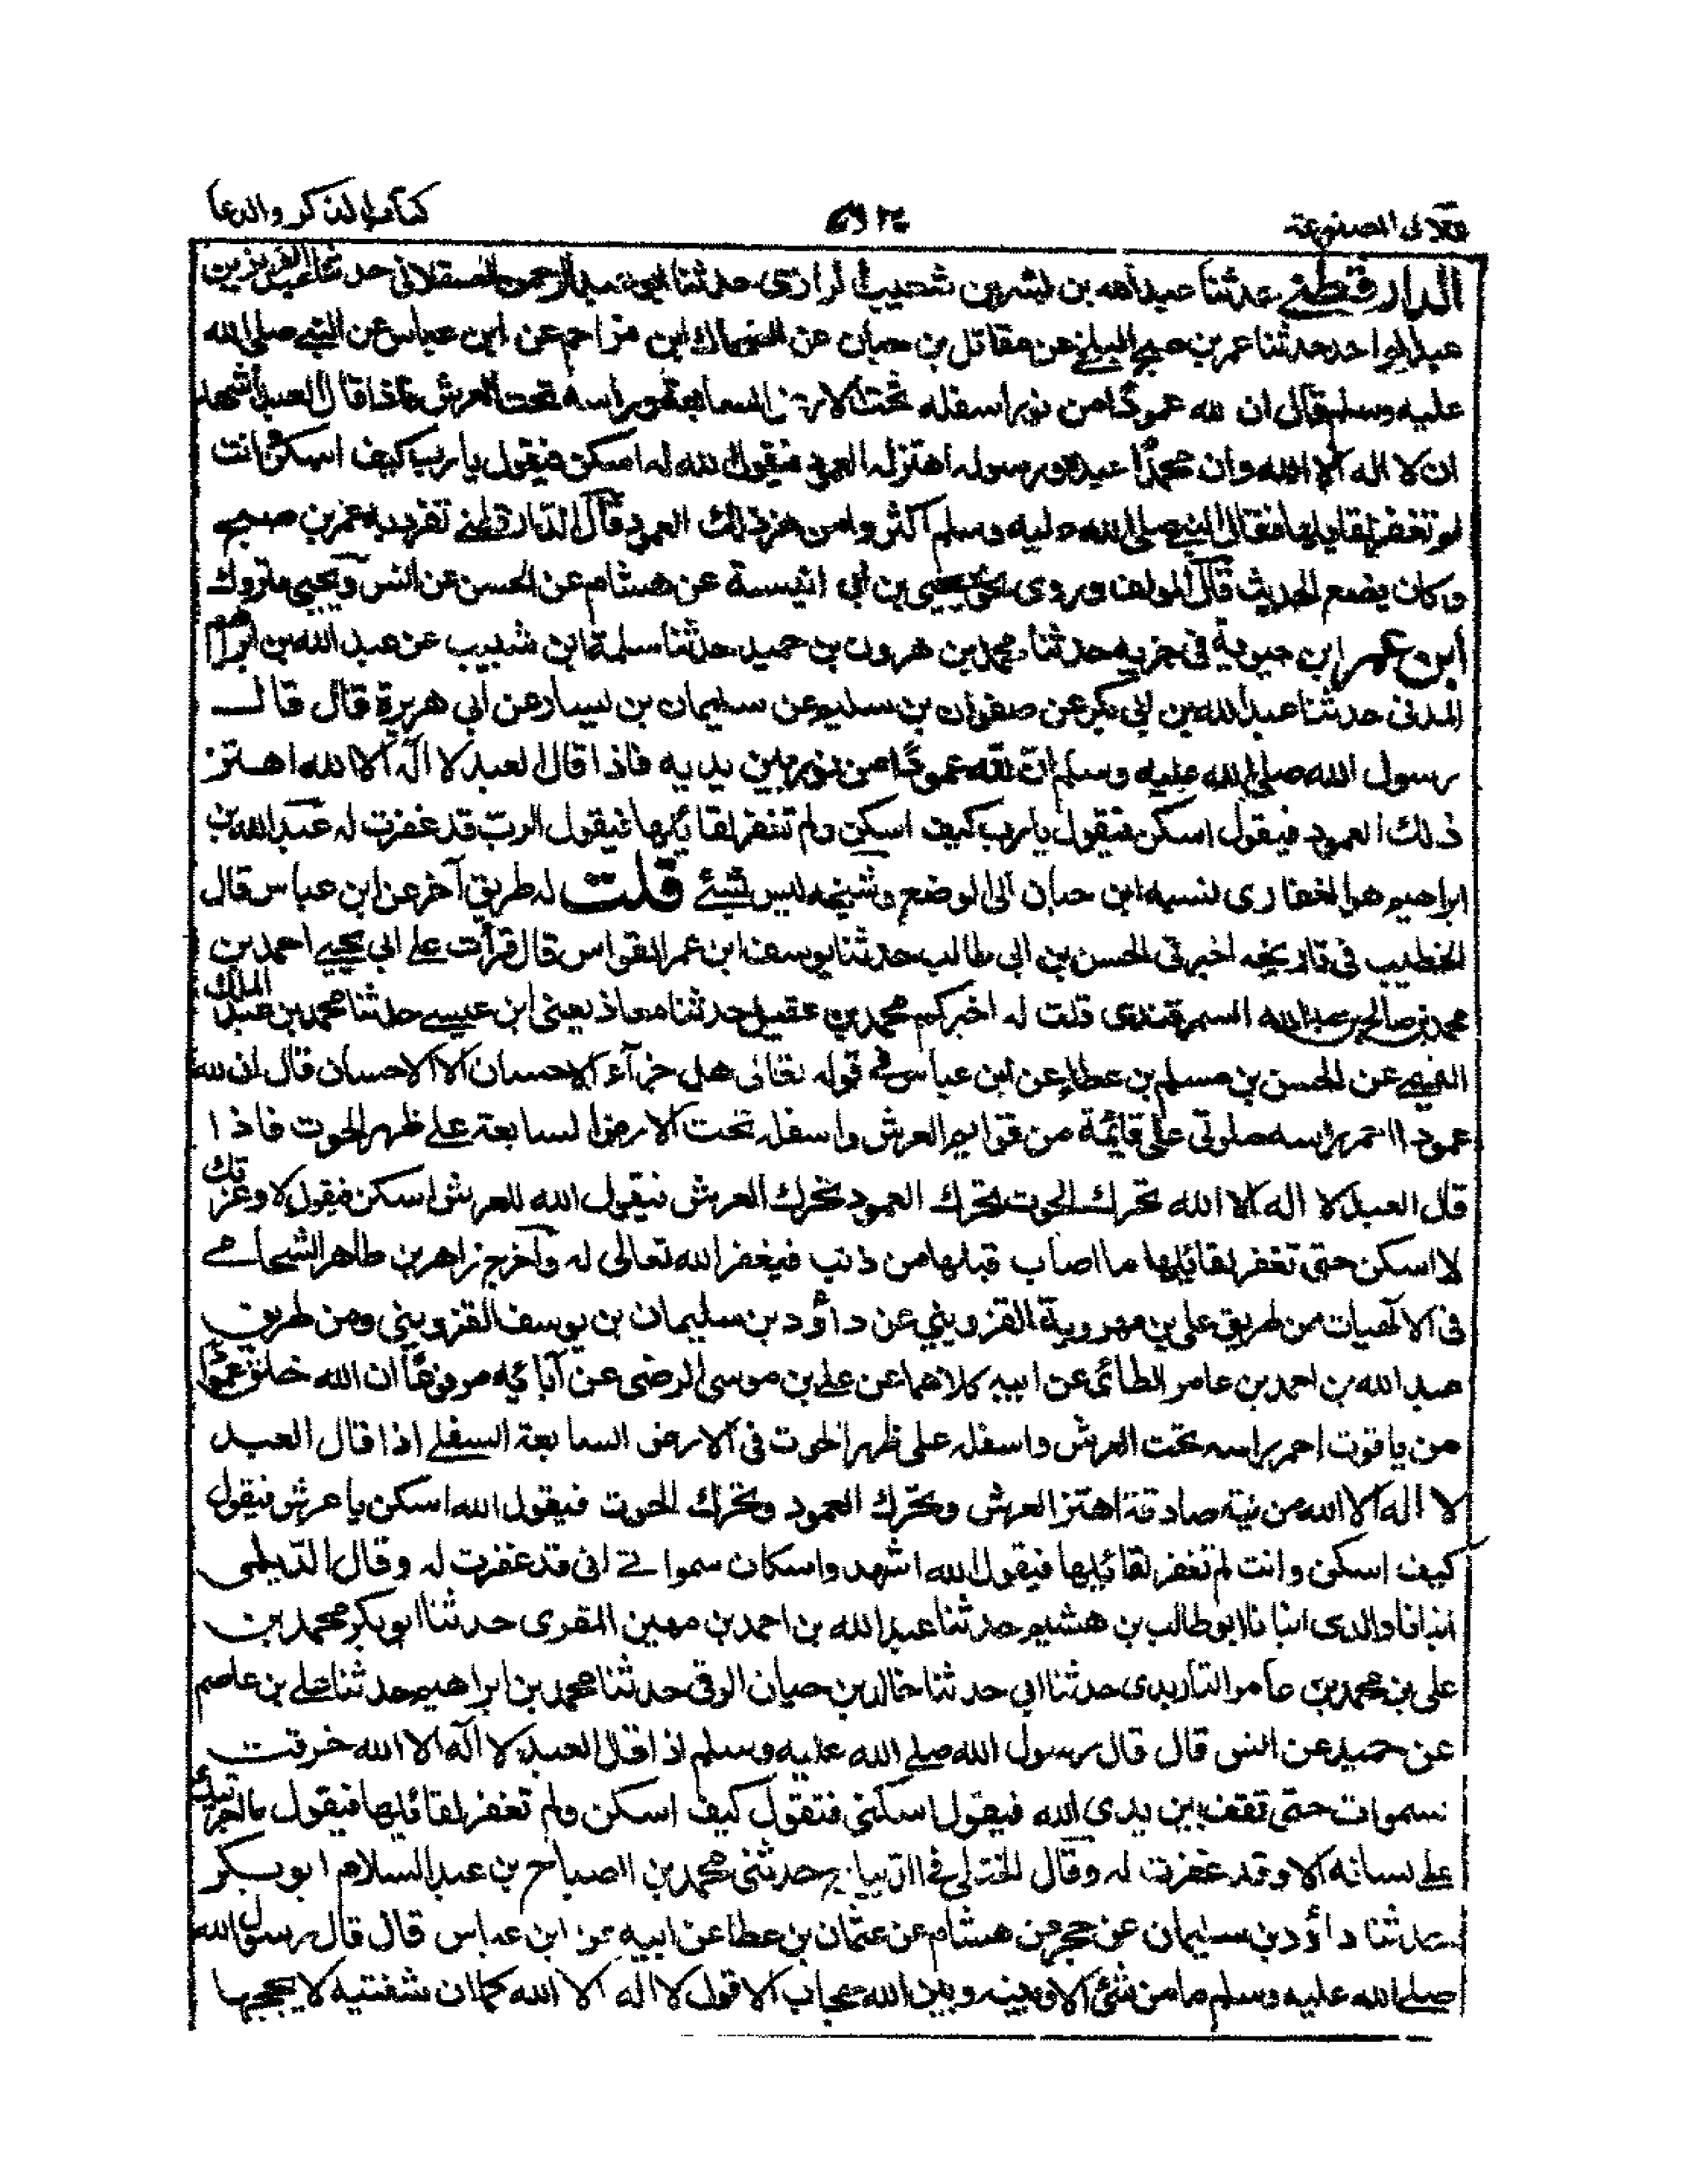 لآلئ المصنوعة
كتاب الذكر والدعا
الدارقطنى حدثنا عبدالله بن بشر بن شعيب الرازى حدثنا ابو عبدالرحمن العسقلانى حدثنا عبد العزيز بن
عبدالواحد حدثنا عمر بن صبح البلخى عن مقاتل بن حيان عن الضحاك ابن مزاحم عن ابن عباس عن النبى صلى الله
عليه وسلم قال ان لله عمودًا من نور اسفله تحت الارض السابعة وراسه تحت العرش فاذا قال العبد اشهد
ان لا اله الا الله وان محمدًا عبده ورسوله اهتز له العمود فيقول الله له اسكن فيقول يا رب كيف اسكن وانت
لم تغفر لقايلها فقال النبى صلى الله عليه وسلم اكثروا من هز ذلك العمود قال الدارقطنى تفرد به عمر بن صبح
وكان يضع الحديث قال المولف وروى نحوه يحيى بن ابى انيسة عن هشام عن الحسن عن انس ويحيى متروك
ابن عمر ابن حيوية فى جزيه حدثنا محمد بن هرون بن حميد حدثنا سلمة ابن شبيب عن عبد الله بن ابراهيم
المدنى حدثنا عبد الله بن ابى بكر عن صفوان بن سليم عن سليمان بن يسار عن أبى هريرة قال قالــ
رسول الله صلى الله عليه وسلم انّ لله عمودًا من نور بين يديه فاذا قال العبد لا اله الا الله اهتز
ذلك العمود فيقول اسكن فيقول يا رب كيف اسكن ولم تغفر لقائلها فيقول الرب قد غفرت له عبد الله بن
ابراهيم هو الغفارى نسبه ابن حبان الى الوضع وشيخه ليس بشئ قلت له طريق آخر عن ابن عباس قال
الخطيب فى تاريخه اخبرنى الحسن بن ابى طالب حدثنا يوسف ابن عمر القواس قال قرأت على ابى يحيى احمد بن
محمد بن صالح بن عبدالله السمرقندى قلت له اخبركم محمد بن عقيل حدثنا معاذ يعنى ابن عيسى حدثنا محمد بن عبد الملك
عن الحسن بن مسلم بن عطاء عن ابن عباس فى قوله تعالى هل جزآء الاحسان الا الاحسان قال ان لله
عمودا احمر راسه ملوى على قائمة من قوايم العرش واسفله تحت الارض السابعة على ظهر الحوت فاذا
قال العبد لا اله الا الله تحرك الحوت تحرك العمود تحرك العرش فيقول الله للعرش اسكن فيقول لا وعزتك
لا اسكن حتى تغفر لقائلها ما اصاب قبلها من ذنب فيغفر الله تعالى له وآخرج زاهر بن طاهر الشحامى
فى الالهيات من طريق على بن مهروية القزوينى عن داؤد بن سليمان بن يوسف القزوينى ومن طريق
عبد الله بن احمد بن عامر الطائى عن ابيه كلاهما عن على بن موسى الرضى عن آبائه مرفوعًا ان الله خلق عمودًا
من ياقوت احمر راسه تحت العرش واسفله على ظهر الحوت فى الارض السابعة السفلى اذا قال العبد
لا اله الا الله من نية صادقة اهتز العرش وتحرّك العمود وتحرّك الحوت فيقول الله اسكن يا عرش فيقول
كيف اسكن وانت لم تغفر لقائلها فيقول الله اشهدوا سكان سمواتى انى قد غفرت له وقال الديلمى
انبانا والدى انبانا ابو طالب بن هشيم حدثنا عبد الله بن احمد بن مهين المقرى حدثنا ابو بكر محمد بن
على بن محمد بن عامر حدثنا ابى حدثنا خالد بن حيان الرقى حدثنا محمد بن ابراهيم حدثنا على بن عاصم
عن حميد عن انس قال قال رسول الله صلى الله عليه وسلم اذا قال العبد لا اله الا الله خرقت
سموات حتى تقف بين يدى الله فيقول اسكنى فتقول كيف اسكن ولم تغفر لقائلها فيقول ما اجريتك
على لسانه الا وقد غفرت له وقال الختلى فى الديباج حدثنى محمد بن الصباح بن عبد السلام ابو بكر
حدثنا داؤد بن سليمان عن حجر بن هشام عن عثمان بن عطا عن ابيه عن ابن عباس قال قال رسول الله
صلى الله عليه وسلم ما من شئ الا وبينه وبين الله حجاب الا قول لا اله الا الله كما ان شفتيه لا يحجبها